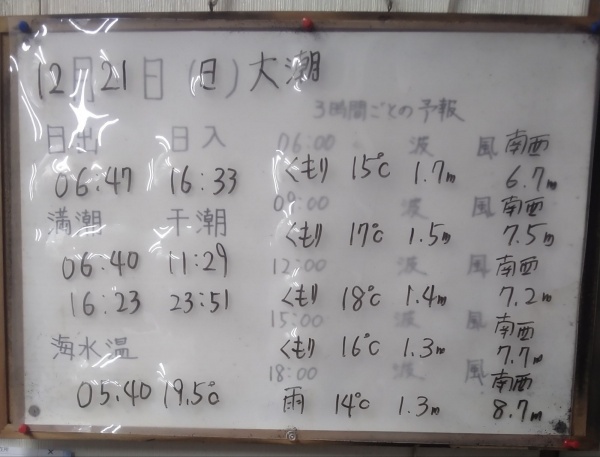 12月21日(日)大潮
3時間ごとの予報
日出 日入
06:47 16:33
満潮 干潮
06:40 11:29
16:23 23:51
海水温
05:40 19.5℃
06:00 波 風 南西
くもり 15℃ 1.7m 6.7m
09:00 波 風 南西
くもり 17℃ 1.5m 7.5m
12:00 波 風 南西
くもり 18℃ 1.4m 7.2m
15:00 波 風 南西
くもり 16℃ 1.3m 7.7m
18:00 波 風 南西
雨 14℃ 1.3m 8.7m